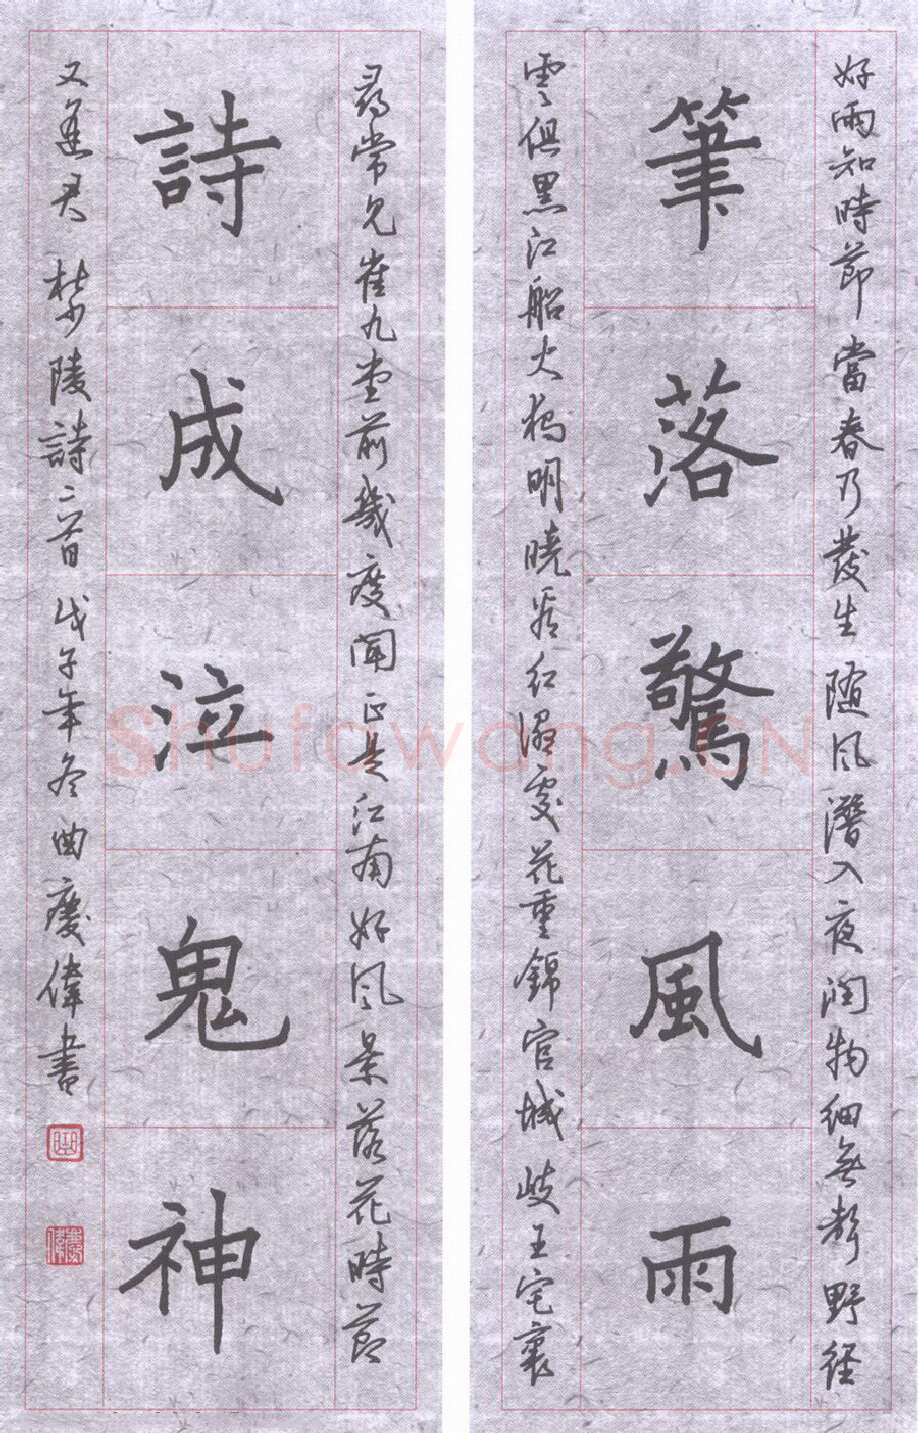 好雨知時節當春乃發生随风潛入夜潤物細無聲野徑
筆落驚風雨
雲俱黑江船火獨明曉看紅濕處花重錦官城岐王宅裏
尋常見崔九堂前幾度聞正是江南好风景落花時節
詩成泣鬼神
又逢君杜少陵詩二首戊子年冬曲慶偉書
曲
慶偉
Shufawang.CN